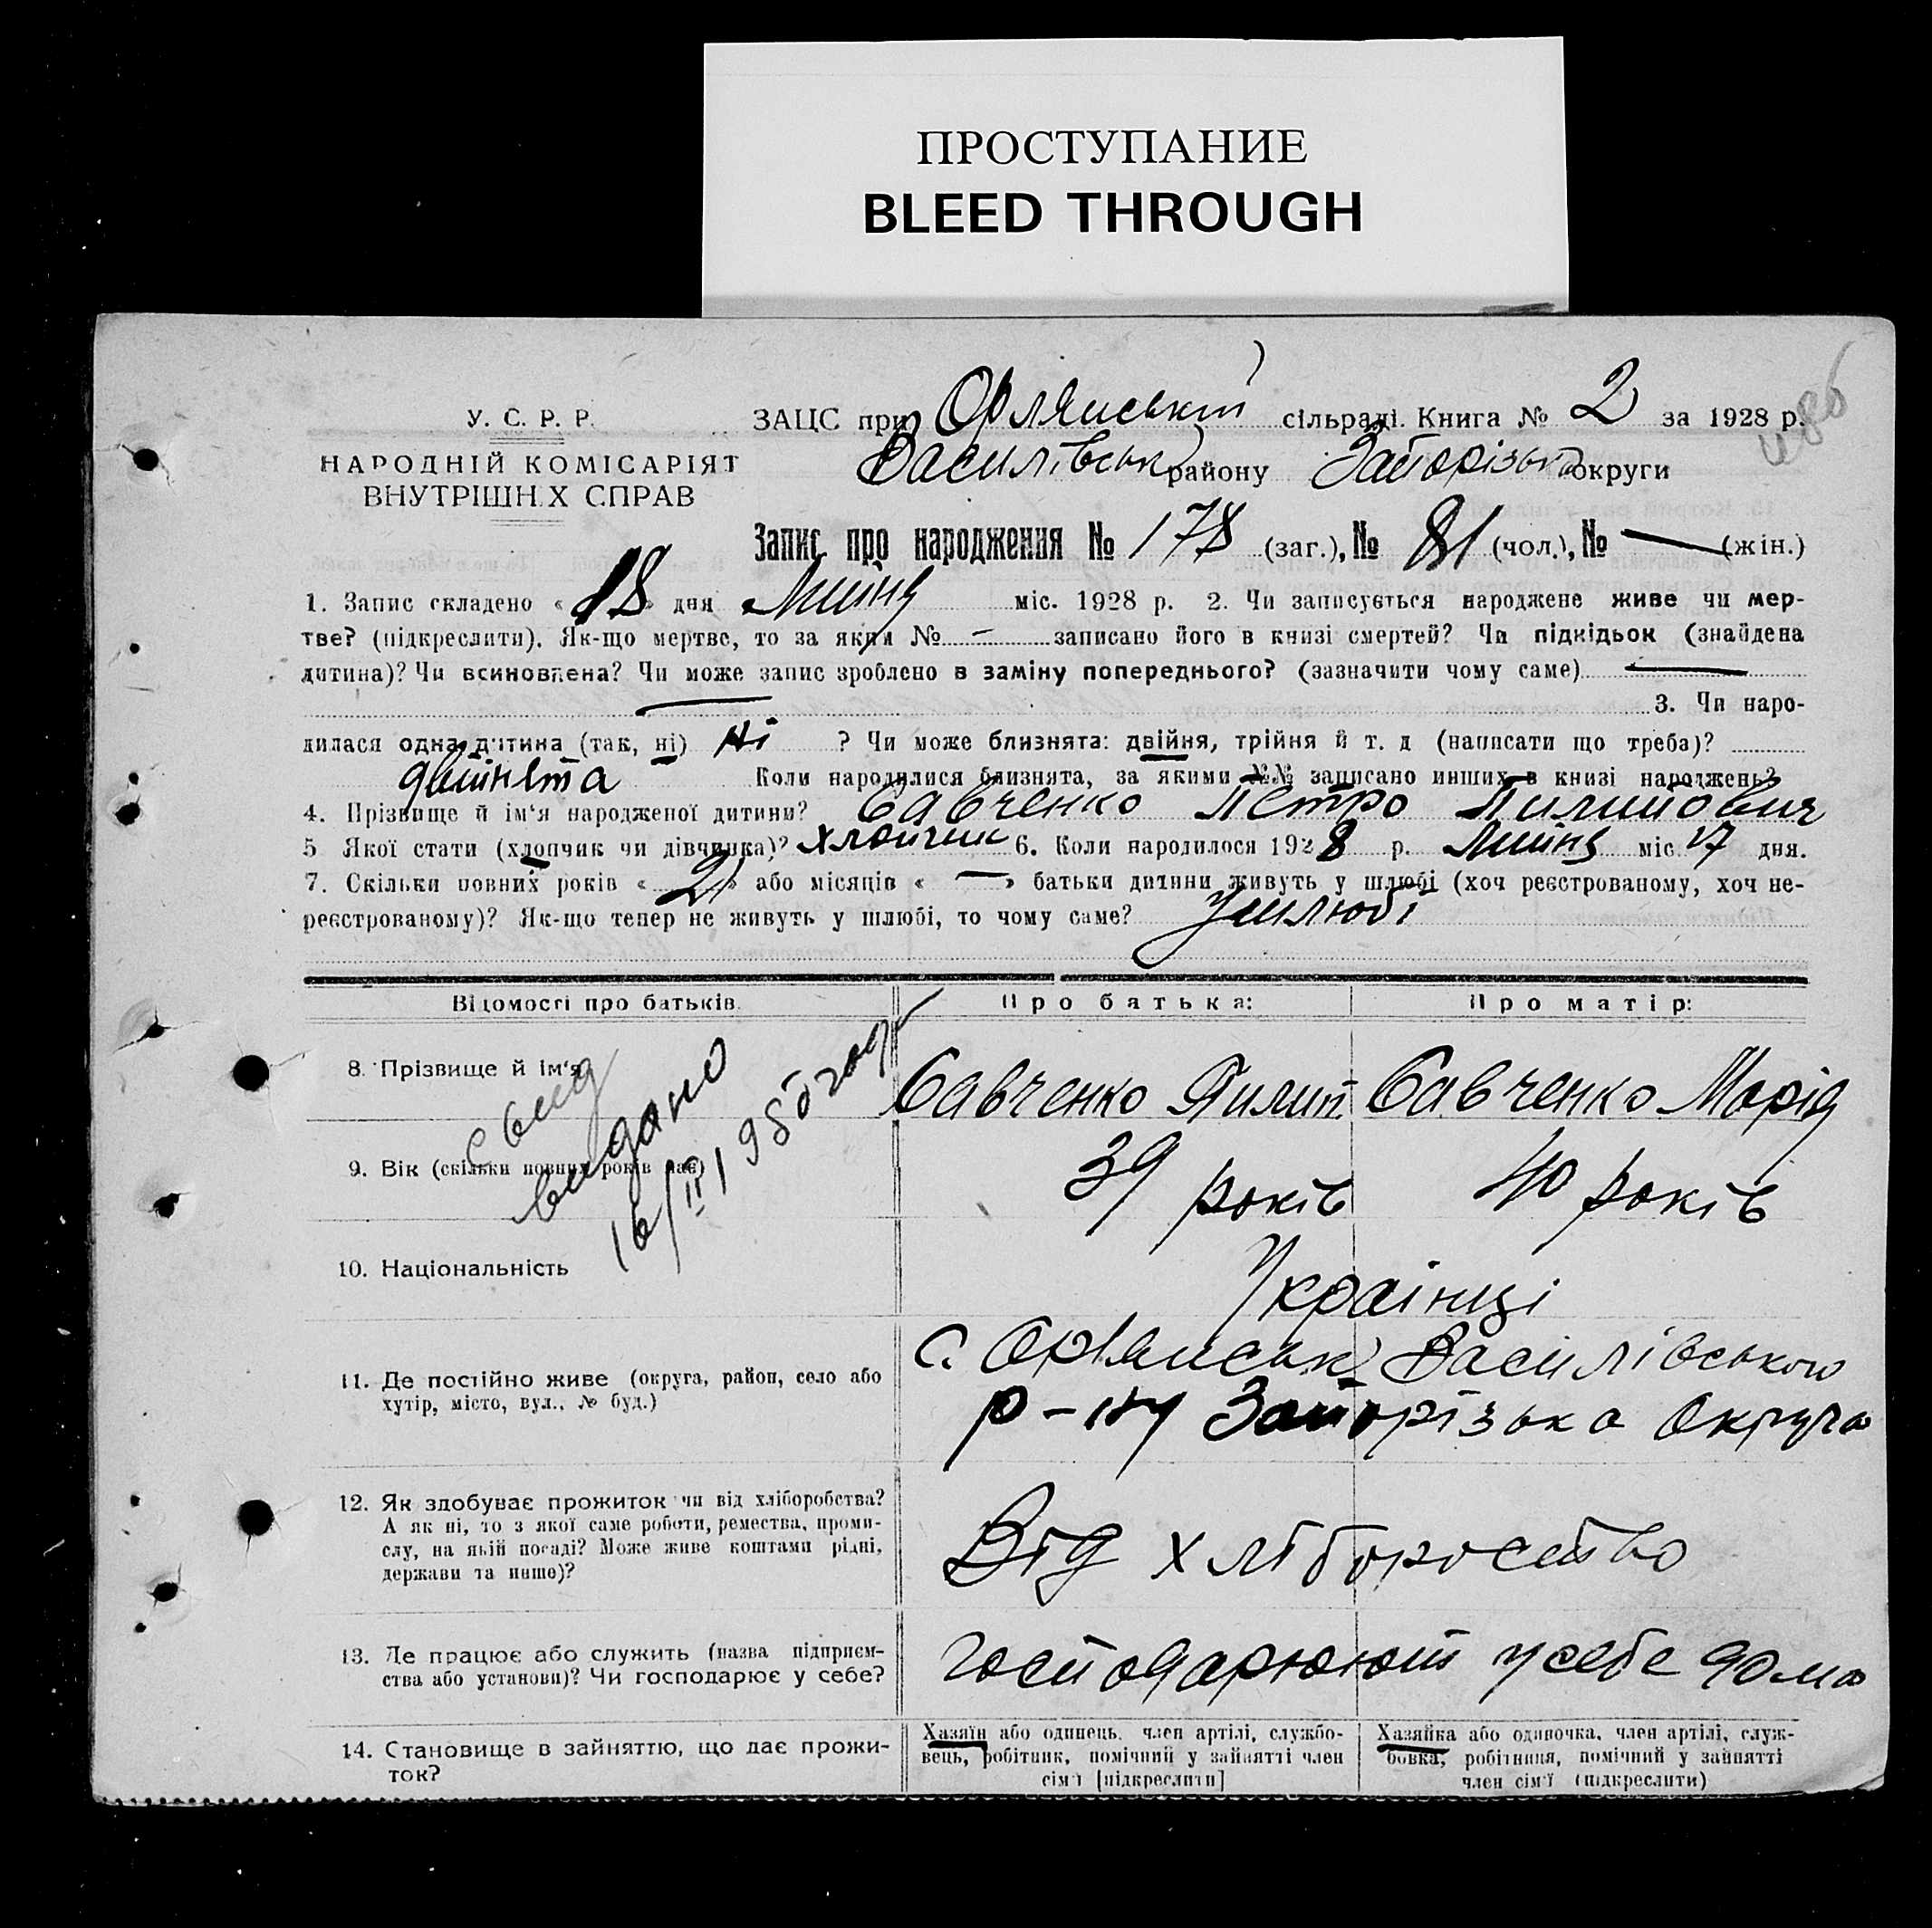 ПРОСТУПАНИЕ
BLEED THROUGH
У. С. Р. Р.
НАРОДНІЙ КОМІСАРІЯТ
ВНУТРІШНІХ СПРАВ
ЗАЦС при Орлянській сільраді. Книга № 2 за 1928 р.
Василівськ району Запорізька округи
Запис про народження № 178 (заг.), № 81 (чол.), № — (жін.)
1. Запис складено « 18 » дня Липня міс. 1928 р. 2. Чи записується народжене живе чи мер-
тве? (підкреслити). Як-що мертве, то за яким № — записано його в книзі смертей? Чи підкідьок (знайдена
дитина)? Чи всиновлена? Чи може запис зроблено в заміну попереднього? (зазначити чому саме) —
— 3. Чи наро-
дилася одна дитина (так, ні) Ні ? Чи може близнята: двійня, трійня й т. д (написати що треба)?
двійнята Коли народилися близнята, за якими №№ записано инших в книзі народжень?
4. Прізвище й ім'я народженої дитини? Савченко Петро Пилипович
5 Якої стати (хлопчик чи дівчинка)? хлопчик 6. Коли народилося 1928 р. Липня міс. 17 дня.
7. Скільки повних років « 21 » або місяців « — » батьки дитини живуть у шлюбі (хоч реєстрованому, хоч не-
реєстрованому)? Як-що тепер не живуть у шлюбі, то чому саме? У шлюбі
Відомості про батьків. Про батька: Про матір:
8. Прізвище й ім'я Савченко Пилип Савченко Марія
9. Вік (скільки повних років має) 39 років 40 років
видано
10. Національність Українці
11. Де постійно живе (округа, район, село або
хутір, місто, вул., № буд.)
с. Орлянськ Василівського
р-ну Запорізька округа
12. Як здобуває прожиток чи від хліборобства?
А як ні, то з якої саме роботи, ремества, проми-
слу, на якій посаді? Може живе коштами рідні,
держави та инше)?
Від хліборобства
13. Де працює або служить (назва підприєм-
ства або установи)? Чи господарює у себе?
господарюють у себе дома
14. Становище в зайняттю, що дає прожи-
ток?
Хазяїн або одинець, член артілі, службо-
вець, робітник, помічний у зайнятті член
сім'ї [підкреслити]
Хазяйка або одиночка, член артілі, служ-
бовка, робітниця, помічний у зайнятті
член сім'ї (підкреслити)